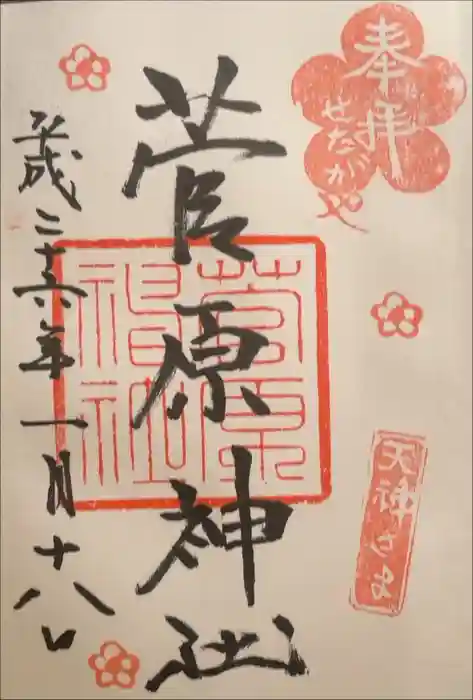 奉拝
せたがや
菅原神社
菅原神社
天神
平成二十六年一月十八日